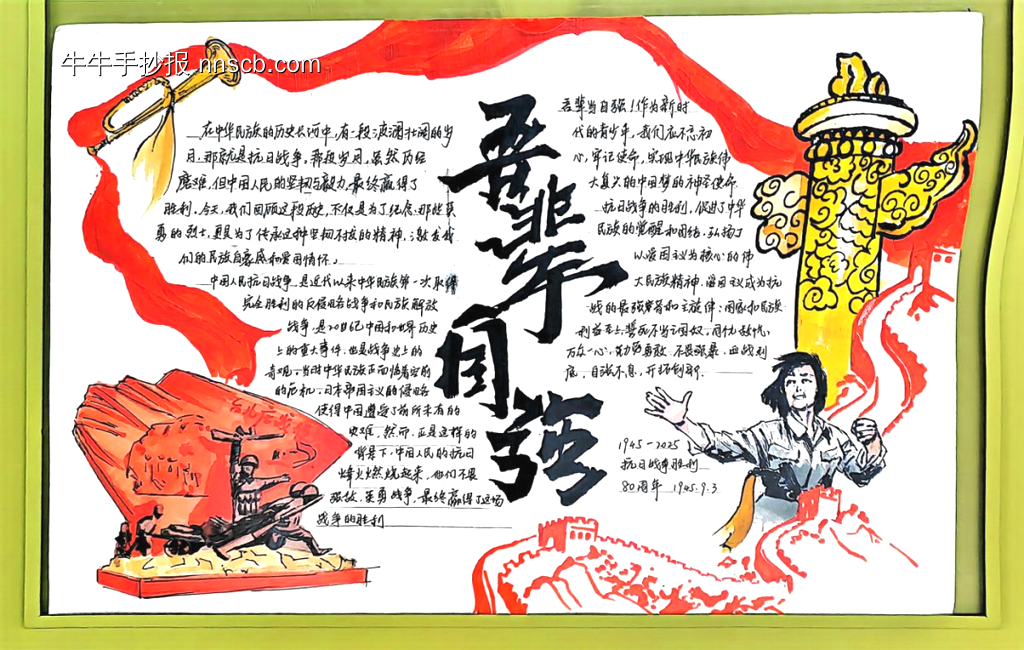 牛牛手抄报 nnscb.com
吾辈自强
在中华民族的历史长河中,有一段波澜壮阔的岁
月,那就是抗日战争,那段岁月,虽然历经
磨难,但中国人民的坚韧与毅力,最终赢得了
胜利,今天,我们回顾这段历史,不仅是为了纪念那些英
勇的烈士,更是为了传承这种坚韧不拔的精神,激发我
们的民族自豪感和爱国情怀。
中国人民抗日战争,是近代以来中华民族第一次取得
完全胜利的反侵略战争和民族解放
战争,是20世纪中国和世界历史
上的重大事件,也是战争史上的
奇观,当时中华民族正面临着空前
的危机,日本帝国主义的侵略
使得中国遭受了前所未有的
灾难,然而,正是这样的
背景下,中国人民的抗日
烽火燃烧起来,他们不畏
强敌,英勇战争,最终赢得了这场
战争的胜利
吾辈当自强!作为新时
代的青少年,我们应不忘初
心,牢记使命,实现中华民族伟
大复兴的中国梦的神圣使命
抗日战争的胜利,促进了中华
民族的觉醒和团结,弘扬了
以爱国主义为核心的伟
大民族精神,爱国主义成为抗
战的最强音和主旋律:国家和民族
利益至上,誓死不当亡国奴,同仇敌忾;
万众一心,努力勇敢,不畏强暴,血战到
底,自强不息,开拓创新.
1945-2025
抗日战争胜利
80周年 1945.9.3
台儿庄战